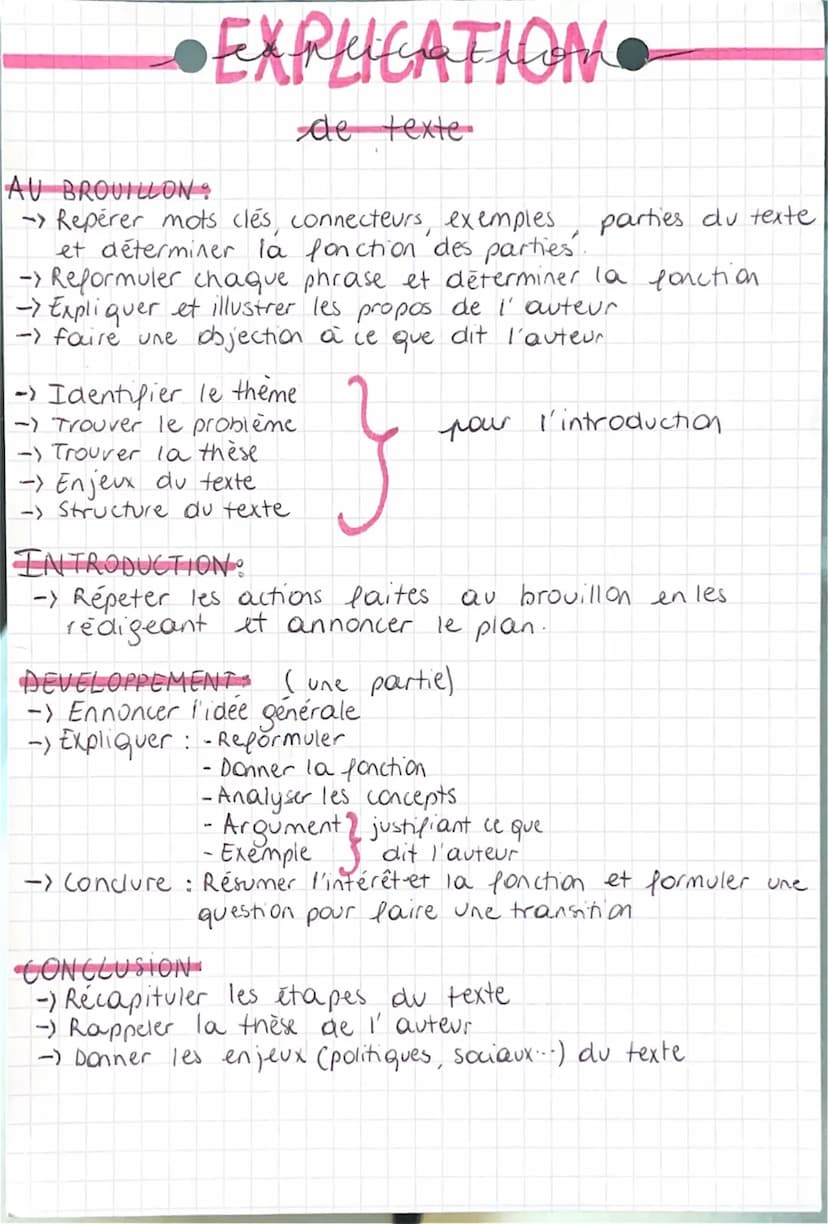 EXPLICATION
explication
de texte
AU BROUILLON:
-> Repérer mots clés, connecteurs, exemples, parties du texte
et déterminer la fonction des parties.
-> Reformuler chaque phrase et déterminer la fonction
-> Expliquer et illustrer les propos de l'auteur
-> faire une objection à ce que dit l'auteur
-> Identifier le thème
-> Trouver le problème
-> Trouver la thèse
-> Enjeux du texte
-> Structure du texte
} pour l'introduction
INTRODUCTION:
-> Répeter les actions faites au brouillon en les
rédigeant et annoncer le plan.
DEVELOPPEMENT: (une partie)
-> Ennoncer l'idée générale
-> Expliquer : - Reformuler
- Donner la fonction
- Analyser les concepts
- Argument } justifiant ce que
- Exemple } dit l'auteur
-> Conclure : Résumer l'intérêt et la fonction et formuler une
question pour faire une transition
CONCLUSION
-> Récapituler les étapes du texte
-> Rappeler la thèse de l'auteur
-> Donner les enjeux (politiques, sociaux...) du texte